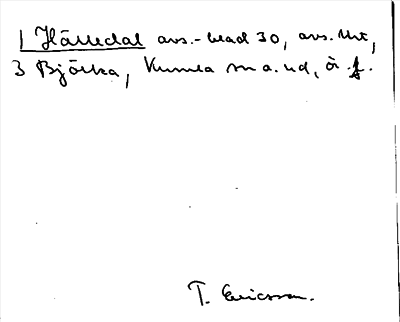 1 Hälledal avs.-blad 30, avs. Mt,
3 Björka, Kumla sn a. ud, ä. f.
T. Ericsson.